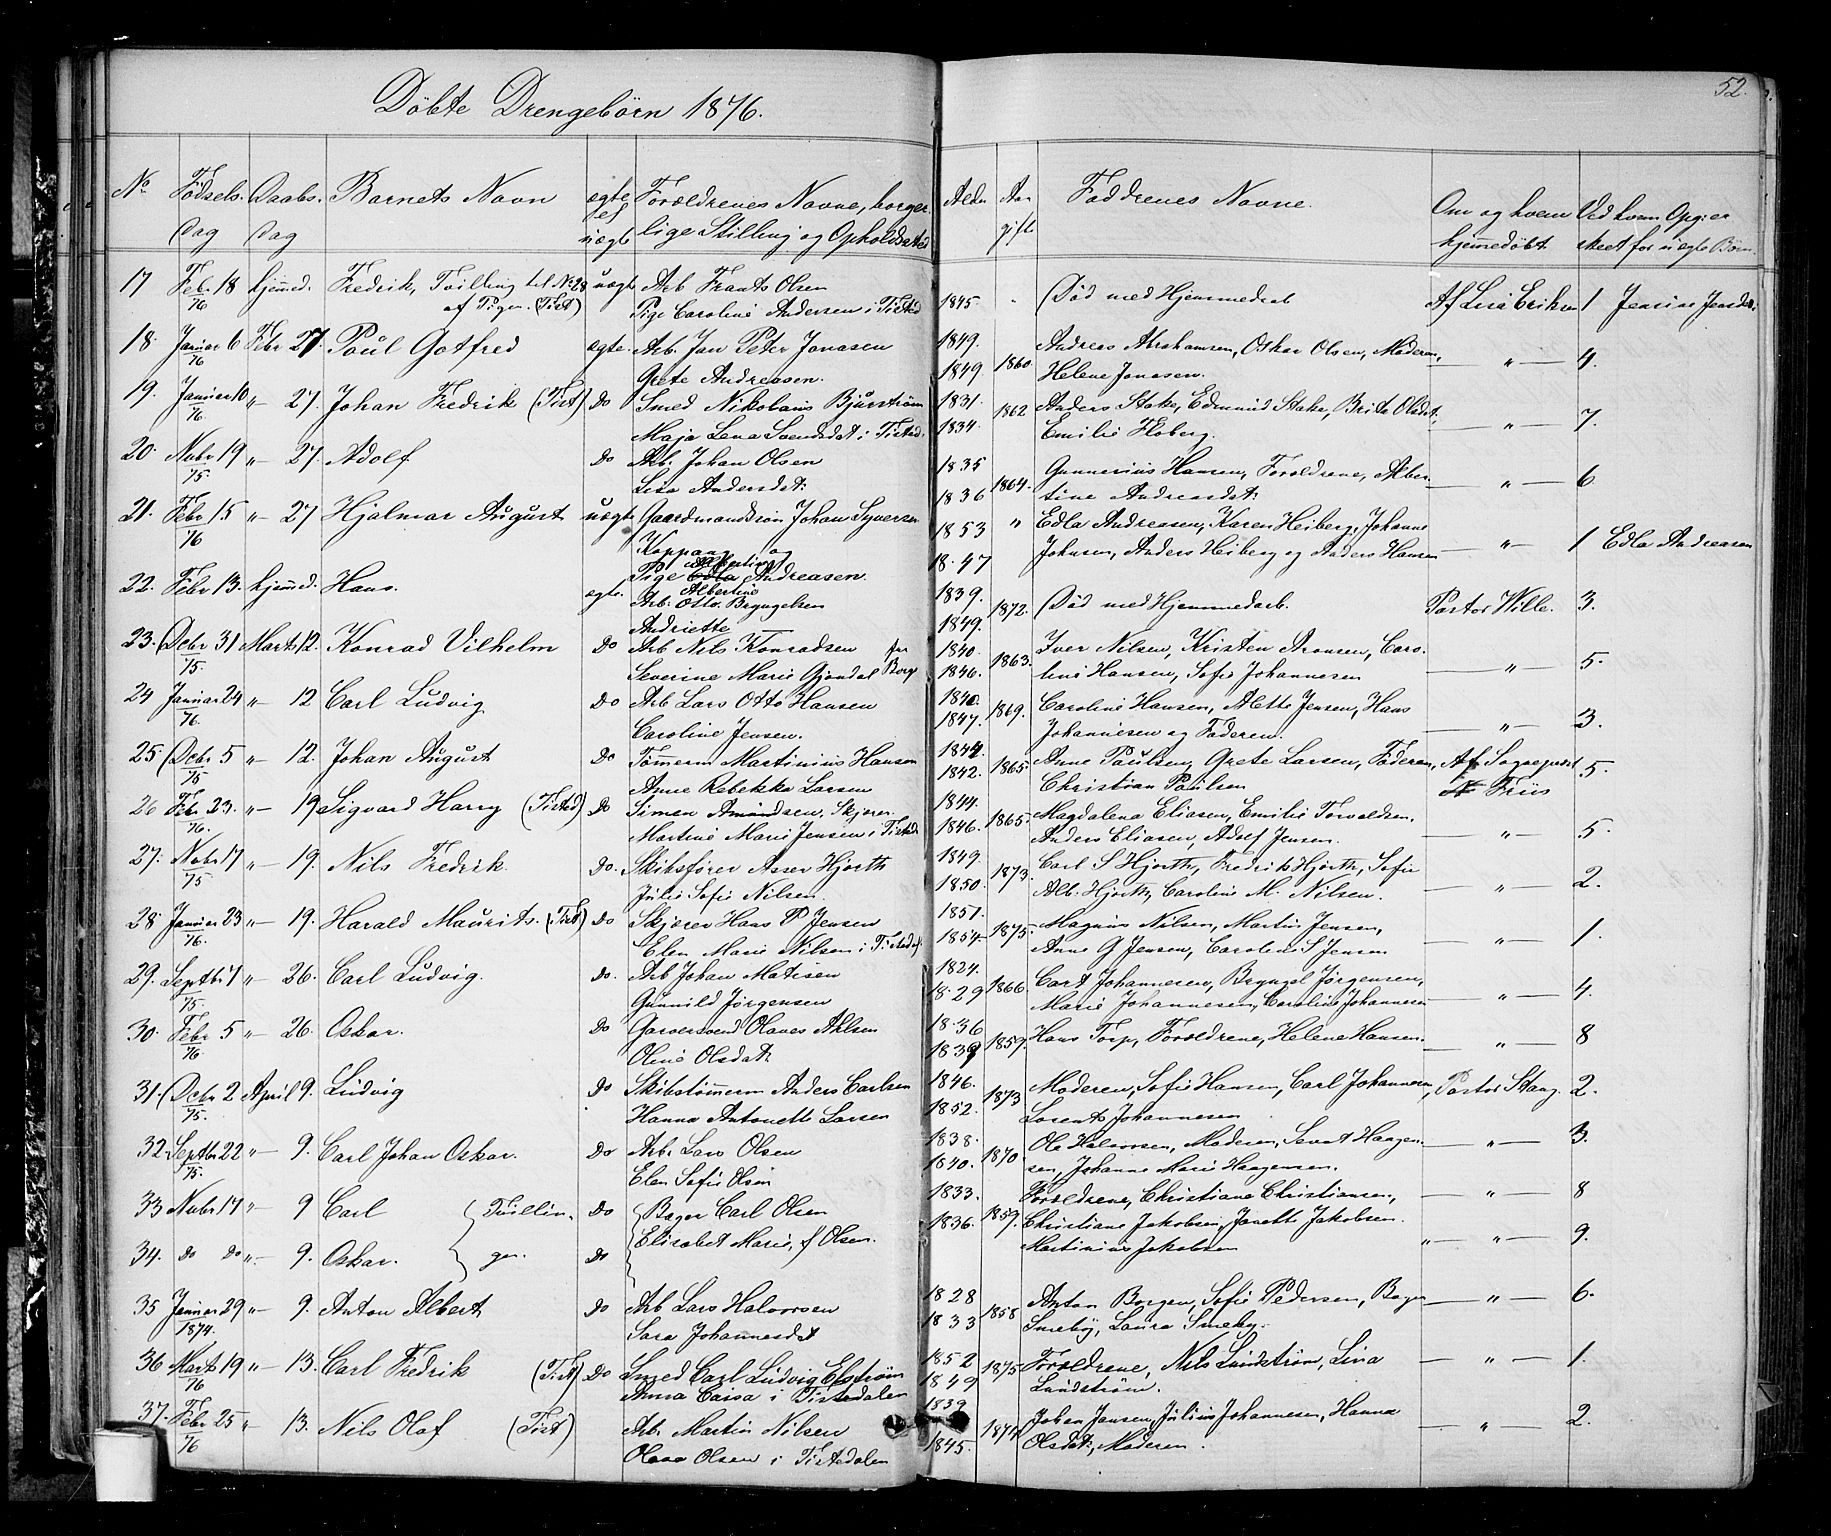 52.
Döbte Drengebörn 1876.
No Födsels Dag Daabs Dag Barnets Navn ægte el uægte Forældrenes Navne, borgerlige Stilling og Opholdssted Alder Aar gifte Faddrenes Navne. Om og hvem hjemmedøbt Ved hvem Opg. er skeet for uægte Børn
17 Feb. 18 hjemed. Fredrik, Tvilling til No 28 uægte Arb Frants Olsen
76 af Pigen. (Tist) Pige Caroline Andersen i Tistad 1845. Död med Hjemmedaab Af Lise Eriksen 1 Jensine Jensdat.
18. Januar 6 Febr 27 Poul Gotfred ægte. Arb. Jan Peter Jonasen 1849. Andreas Abrahamsen, Oskar Olsen, Moderen,
76 Grete Andreasen. 1849 1860. Helene Jonasen. — " — 4.
19. Januar 10 " 27. Johan Fredrik (Tist) Do Smed Nikolaus Bjurström 1831. 1862 Anders Stake, Edmund Stake, Brite Olsdat,
76. Maja Lena Svendsdat i Tistad. 1834. Emilie Hoberg. — " — 7.
20. Nobr 19 " 27. Adolf Do Arb. Johan Olsen 1835 Gunnerius Hansen, Forældrene, Alber-
75. Lisa Andersdat: 1836 1864. tine Andreasdat: — " — 6
21. Febr 15 " 27 Hjalmar August uægte Gaardmandssön Johan Syversen 1853 " Edla Andreasen, Karen Heiberg, Johanne
76 Koppang og Johnsen, Anders Heiberg og Anders Hansen — " — 1 Edla Andreasen
Pige Albertine Andreasen. 18.47
22. Febr 13. hjemed. Hans. ægte. Arb. Otto Bryngelsen 1839. 1872. Död med Hjemmedaab. Pastor Wille. 3.
Andriette 1849.
23. Decbr 31 Marts 12. Konrad Vilhelm Do Arb Nils Konradsen 1840. 1863. Iver Nilsen, Kristen Aronsen, Caro-
75. Severine Marie Gjöndal 1846. line Hansen, Sofie Johannesen — " — 5.
24 Januar 24 " 12 Carl Ludvig Do Arb Lars Otto Hansen 1840. 1869. Caroline Hansen, Alette Jensen, Hans
76. Caroline Jensen. 1847. Johannesen og Faderen. — " — 3.
25 Decbr 5 " 12. Johan August Do Tömmerm Martinius Hansen 1844. 1865. Anne Paulsen, Grete Larsen, Faderen, Af Sogneprest 5.
75 Anne Rebekka Larsen 1842. Christian Paulsen Friis
26 Febr 23. " 19 Sigvard Harry (Tistad) Do Simen Amundsen, Skjærer 1844. 1865. Magdalena Eliasen, Emilie Torvaldsen,
76. Martine Marie Jensen i Tistad. 1846. Anders Eliasen, Adolf Jensen. — " — 5.
27. Nobr 17 " 19. Nils Fredrik. Do. Skibsförer Asser Hjorth 1849. 1873. Carl S Hjorth, Fredrik Hjorth, Sofie
75 Julie Sofie Nilsen. 1850. Alb. Hjorth, Caroline M. Nilsen. — " — 2.
28 Januar 23 " 19. Harald Maurits. (Tist) Do Skjærer Hans P Jensen 1851. 1875. Magnus Nilsen, Martin Jensen,
76. Elen Marie Nilsen i Tistedal 1854 Anne G Jensen, Caroline S Jensen — " — 1.
29. Septbr 1 " 26. Carl Ludvig. Do. Arb Johan Matisen 1824. 1866 Carl Johannesen, Bryngel Jørgensen,
75. Gunnild Jørgensen 18.29 Marie Johannesen, Caroline Johannesen — " — 4.
30. Febr 5 " 26. Oskar. Do Garversvend Olaves Ahlsen 18.36 1859. Hans Torp, Forældrene, Helene Hansen. — " — 8
76 Oline Olsdat: 1839
31. Decbr 2 April 9. Ludvig Do Skibstömmerm Anders Carlsen 1846. 1873 Moderen, Sofie Hansen, Carl Johannesen, Pastor Stang. 2.
75. Hanna Antonette Larsen 1852. Lorents Johannesen
32. Septbr 22 " 9. Carl Johan Oskar. Do Arb. Lars Olsen 1838. 1870. Ole Halvorsen, Moderen, Savat Haagen- — " — 3.
75. Elen Sofie Olsen 1840. sen, Johanne Marie Haagensen.
33 Nobr 17 " 9 Carl Tvillin- Do Bager Carl Olsen 1833. 1859. Forældrene, Christiane Christiansen, — " — 8
Elisabet Marie, f Olsen. 1836. Christiane Jakobsen, Janette Jakobsen.
34. do do " 9. Oskar. ger. Do Martinius Jakobsen " — " — 9.
35 Januar 29 " 9. Anton Albert Do Arb Lars Halvorsen 1828 1858 Anton Borgen, Sofie Pedersen, Bager — " — 6.
1874. Sara Johannesdat 1833 Smeby, Laura Smeby.
36 Marts 19 " 13. Carl Fredrik (Tist) Do Smed Carl Ludvig Elström 1852 1875 Forældrene, Nils Lundström, Lina — " — 1.
76 Anna Caisa i Tistedalen 1849 Lundström.
37. Febr 25 " 13. Nils Olaf (Tist) Arb. Martin Nilsen 1839 1874 Johan Jansen, Julius Johannesen, Hanna — " — 2.
76 Olava Olsen i Tistedalen 1845. Olsdat, Moderen.